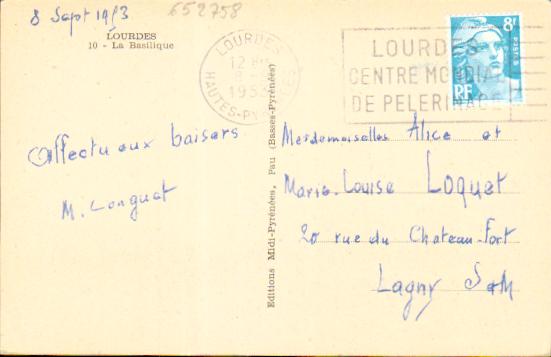 8 Sept 1953
652758
LOURDES
10 - La Basilique
LOURDES
12 H
8 - 9
1953
HAUTES-PYRENEES
LOURDES
CENTRE MONDIAL
DE PELERINAGE
8F
POSTES
RF
Affectueux baisers
M. Longuet
Editions Midi-Pyrénées, Pau (Basses-Pyrénées)
Mesdemoiselles Alice et
Marie-Louise Loquet
20 rue du Chateau-Fort
Lagny S&M